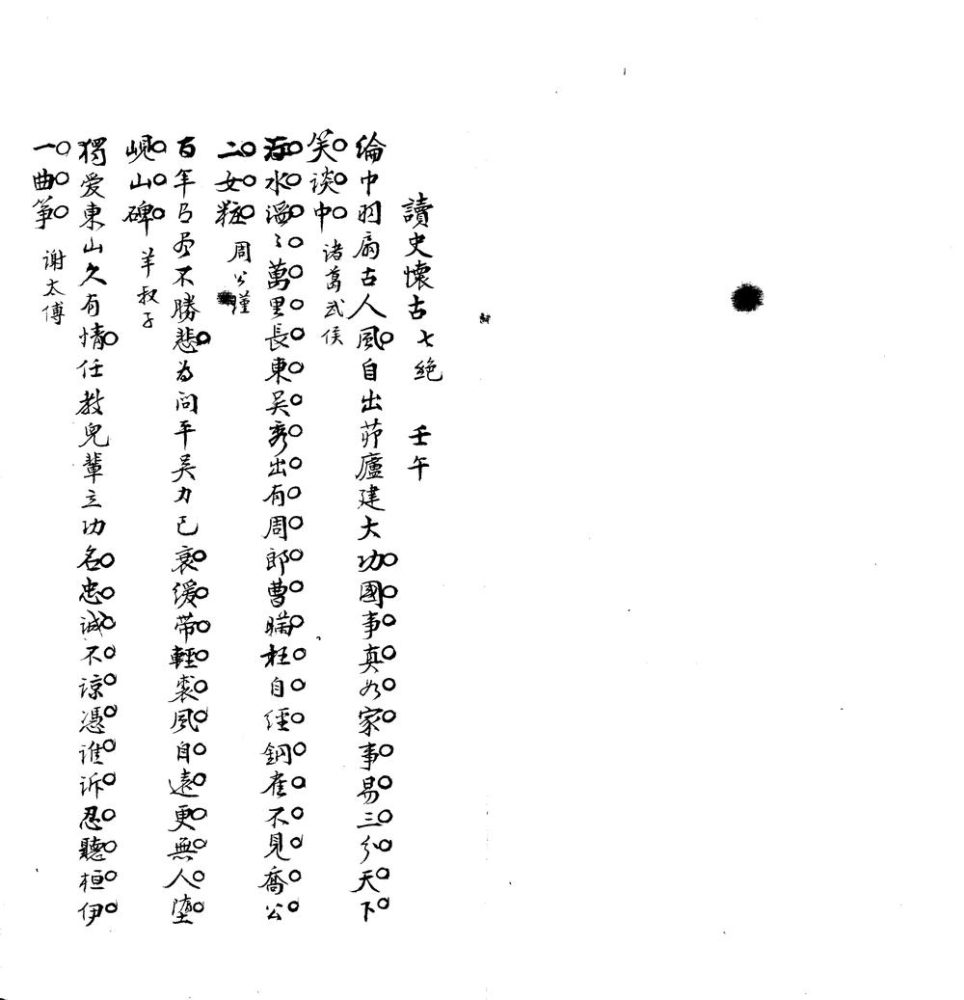 讀史懷古七絕 壬午
綸巾羽扇古人風自出茆廬建大功國事真如家事易三分天下
笑談中 诸葛武侯
水滔〻萬里長東吴秀出有周郎曹瞞枉自經銅雀不見喬公
二女粧 周公瑾
百年弓不勝悲为问平吴力已衰缓带輕裘风自遠更無人堕
峴山碑 羊叔子
獨爱東山久有情任教兒輩立功名忠诚不谅憑谁诉忍聽桓伊
一曲筝 谢太傅